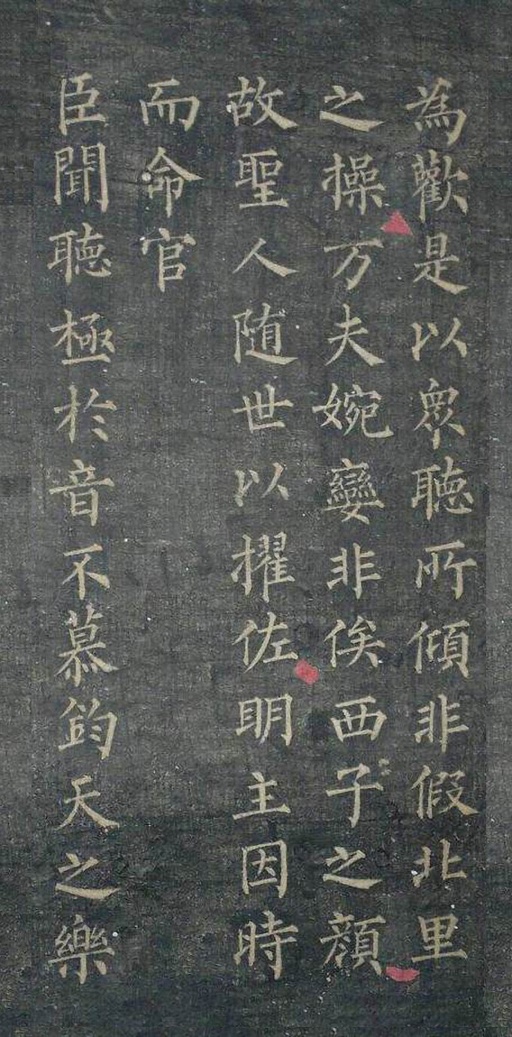 為歡是以眾聽所傾非假北里
之操万夫婉孌非俟西子之顔
故聖人随世以擢佐明主因時
而命官
臣聞聴極於音不慕鈞天之樂